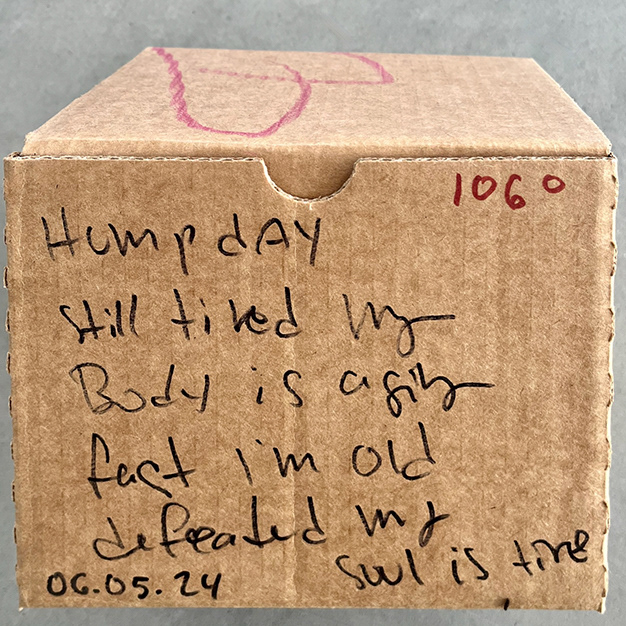 1060
HumpdAY
Still tired My
Body is aging
fast i'm old
defeated My
soul is tire
06.05.24